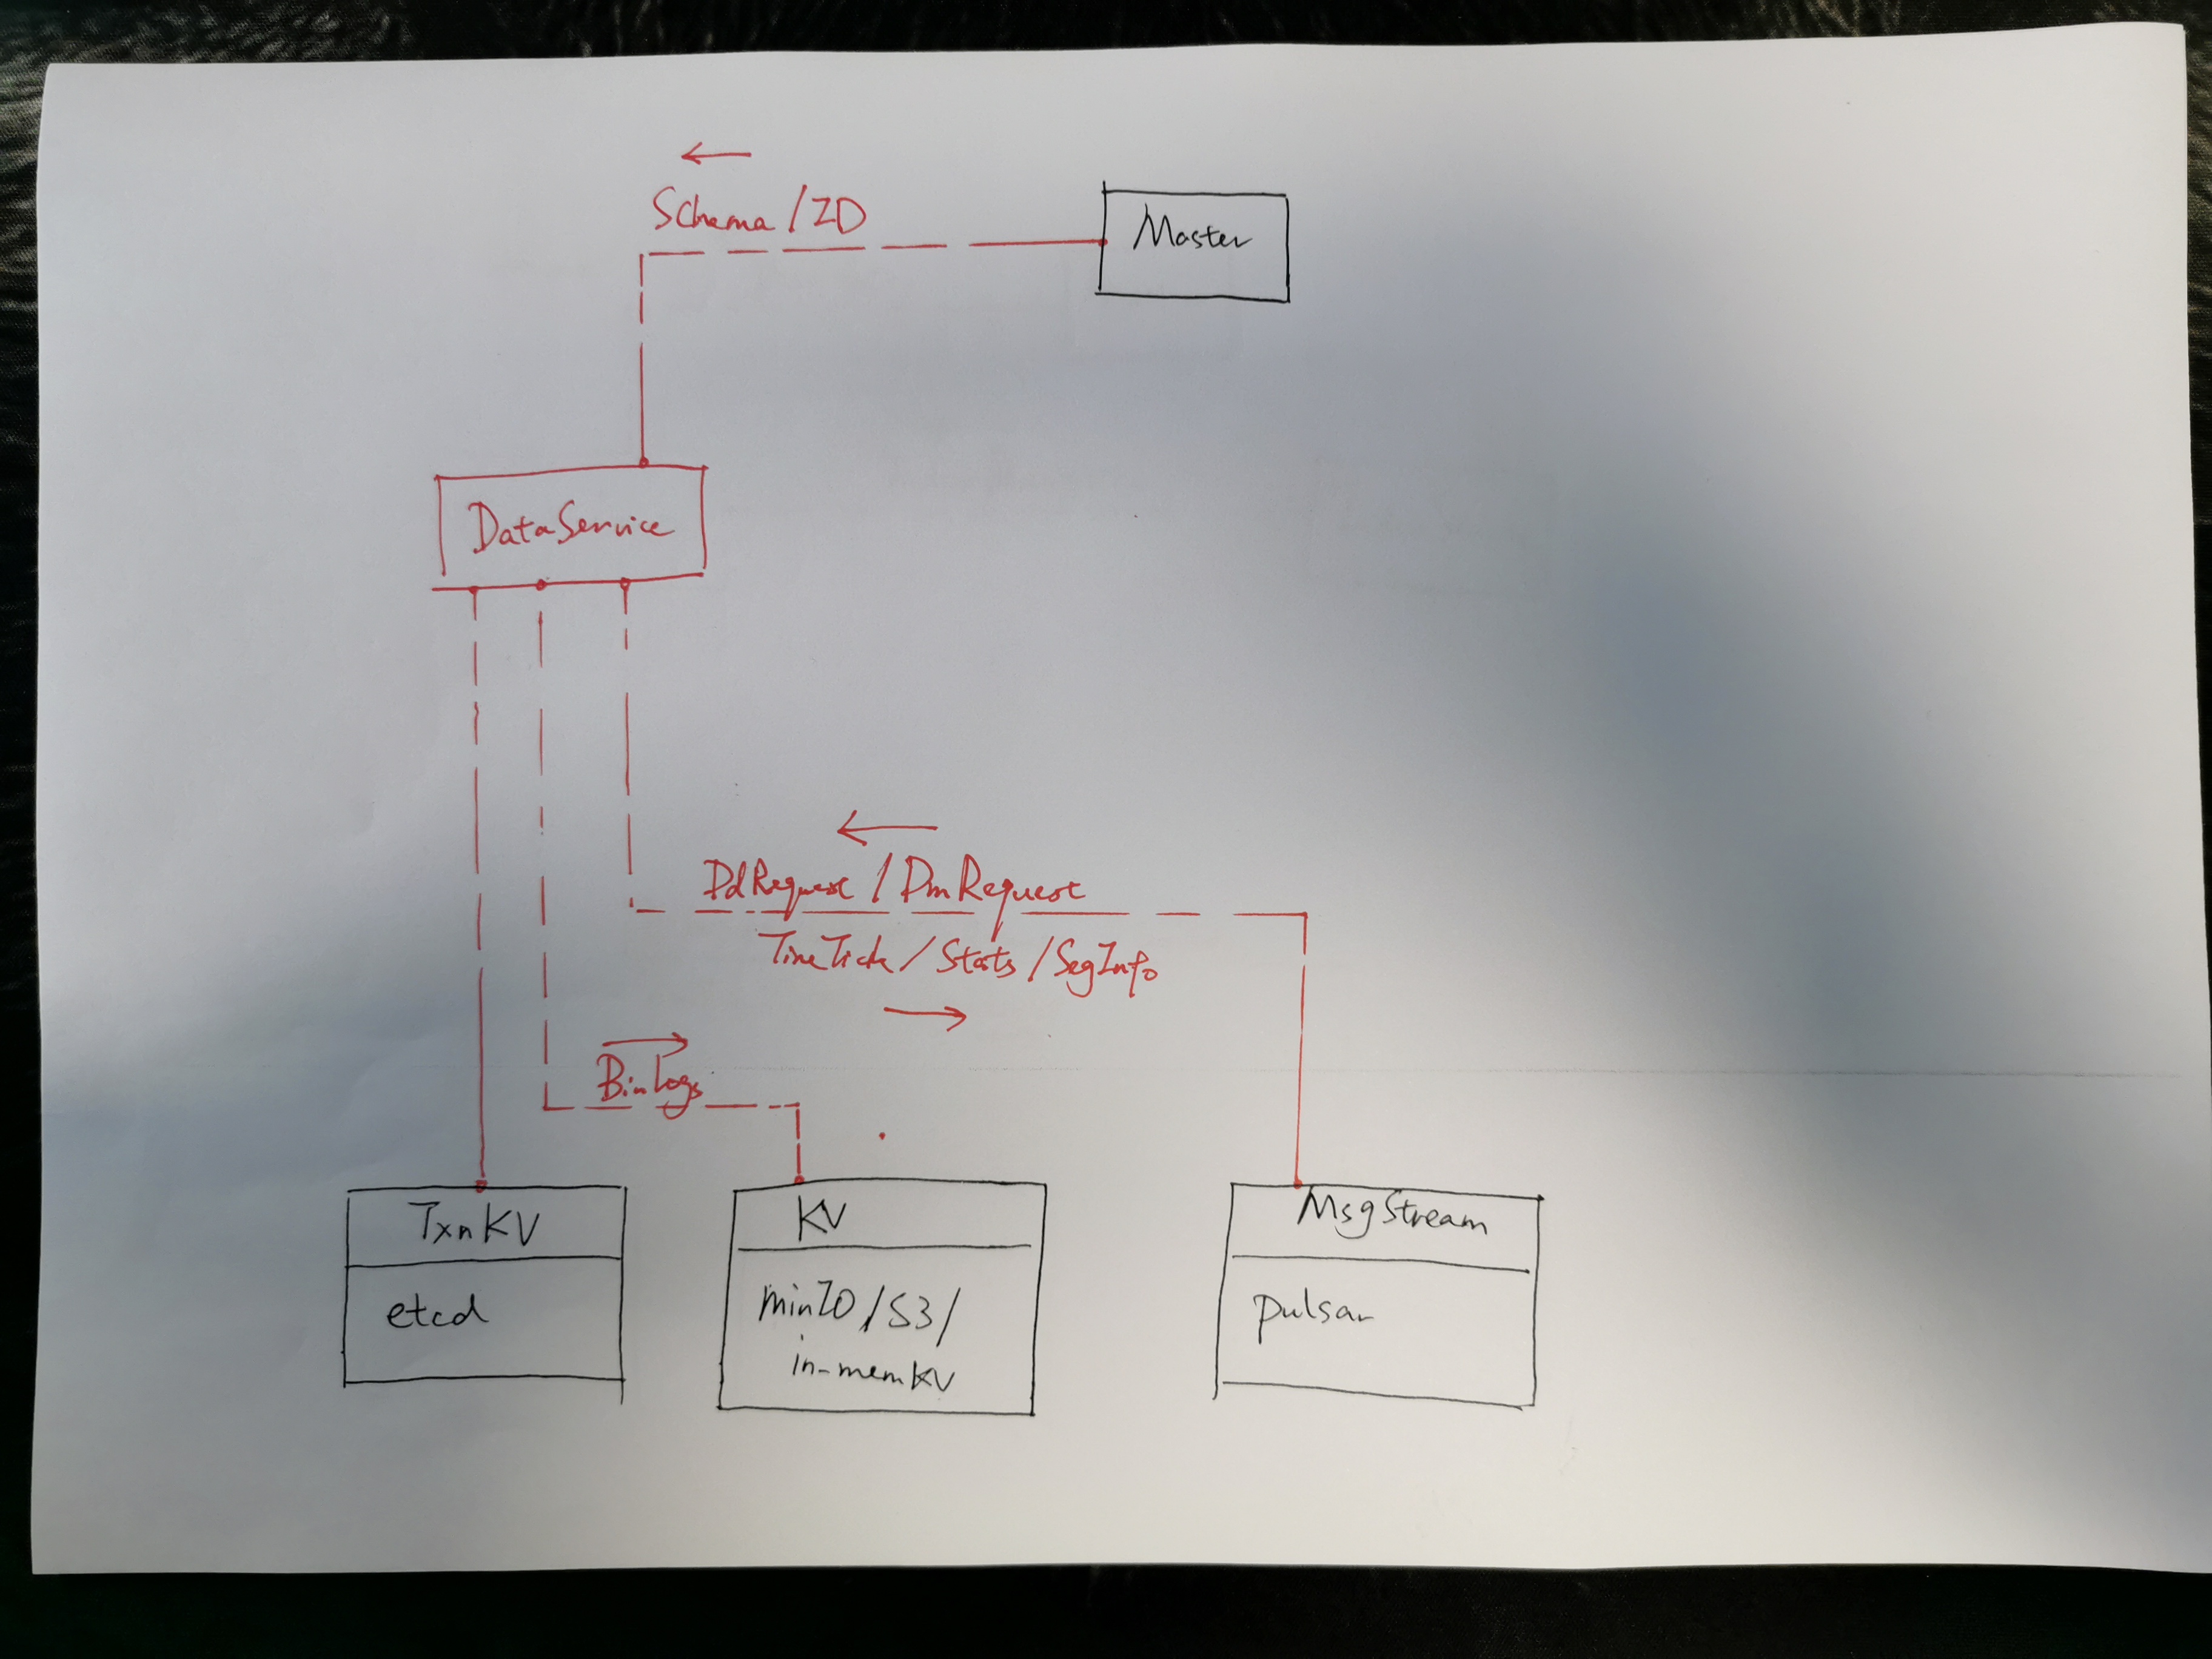 Schema/ID
Master
DataService
DdRequest/DmRequest
TimeTick/Stats/SegInfo
BinLogs
TxnKV
etcd
KV
minIO/S3/
in-memKV
MsgStream
pulsar